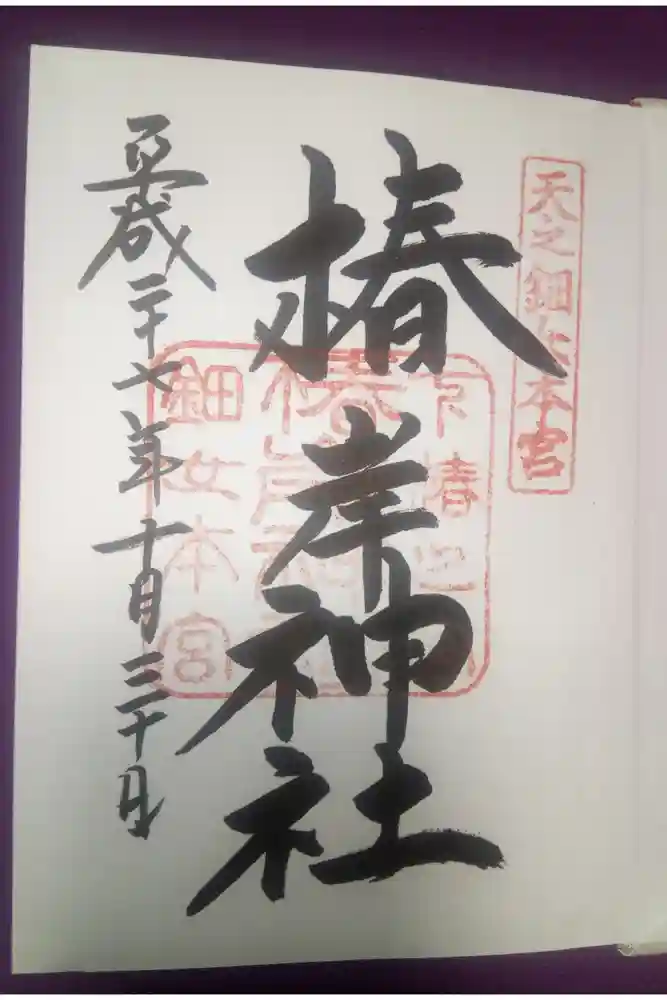 天之鈿女本宮
椿岸神社
平成二十七年十月三十日
鈿女本宮